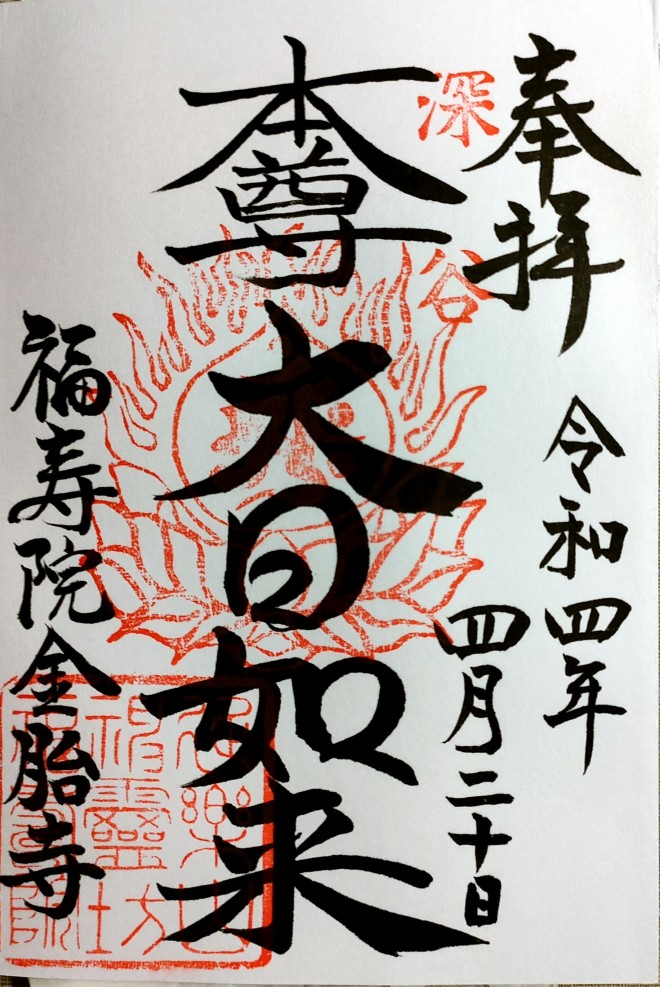 奉拝
深谷
令和四年
四月二十日
本尊
大日如来
福寿院金胎寺